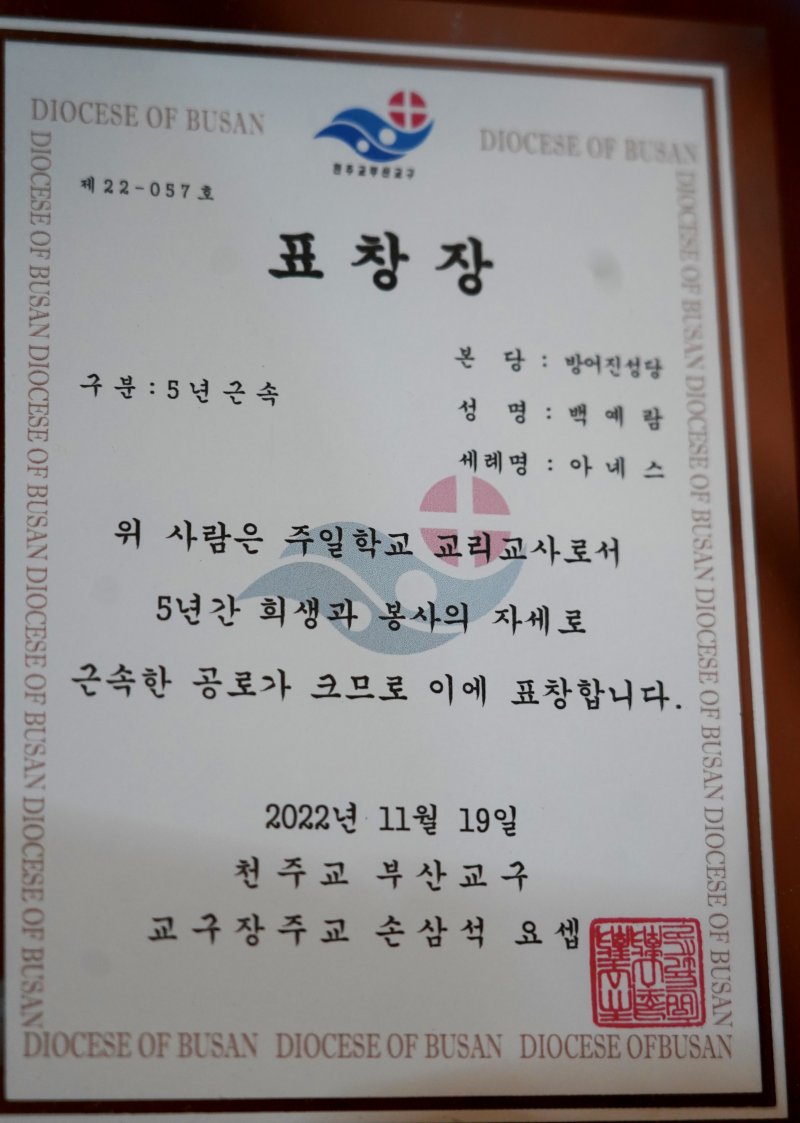 DIOCESE OF BUSAN
DIOCESE OF BUSAN
천주교부산교구
제 22-057 호
표 창 장
본 당 : 방어진성당
구 분 : 5 년 근 속
성 명 : 백 예 람
세례명 : 아 네 스
위 사람은 주일학교 교리교사로서
5년간 희생과 봉사의 자세로
근속한 공로가 크므로 이에 표창합니다.
2022년 11월 19일
천 주 교 부 산 교 구
교 구 장 주 교 손 삼 석 요 셉
DIOCESE OF BUSAN DIOCESE OF BUSAN DIOCESE OF BUSAN DIOCESE OF BUSAN
DIOCESE OF BUSAN DIOCESE OF BUSAN DIOCESE OF BUSAN DIOCESE OF BUSAN
DIOCESE OF BUSAN DIOCESE OF BUSAN DIOCESE OFBUSAN